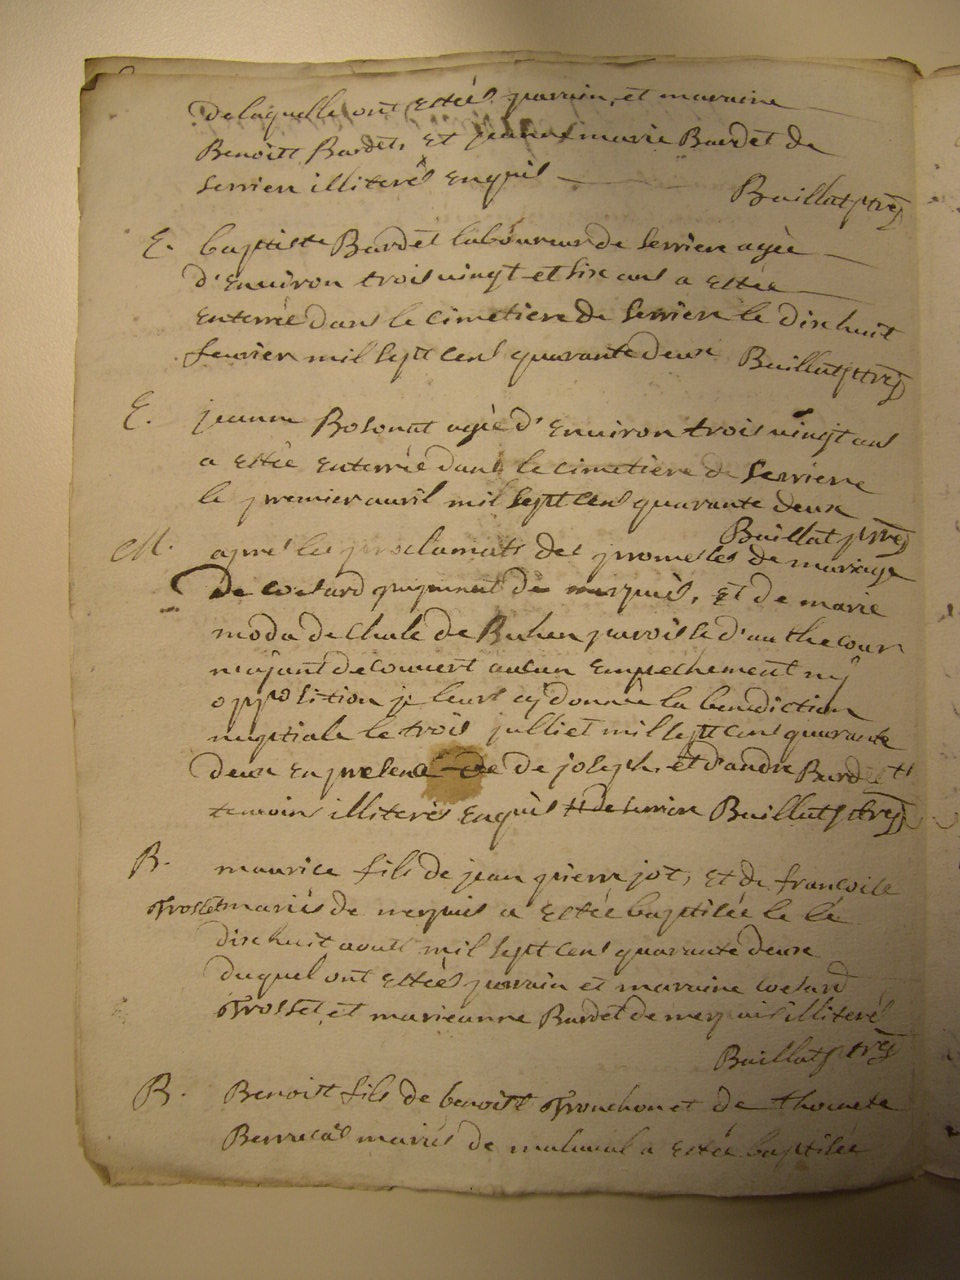 De laquelle ont estés parain, et maraine
Benoitt Bardet, Et jeanne marie Bardet de
Serrien illiterés Enquis
Baillat ptre
E. baptiste Bardet laboureur de Serriere agée
d'Environ trois vingt et six ans a estée
Enterrée Dans le cimetiere de Serriere le dixhuit
feurier mil sept cens quarante deux Baillat ptre
E. jeanne Bosonat agée d'Environ trois vingt ans
a estée Enterrée dans le cimetiere de Serriere
le premier auril mil sept cens quarante deux
Baillat ptre
M. aprés les proclamats des promesses de mariage
De de et de marie
moda de de paroisse d'
n'ajant decouuert aucun Empechement nÿ
opposition je leurs aÿ donnée la benediction
nuptiale le trois julliet mil sept cens quarante
deux En presence de joseph, et d'andre Bardet
temoins illiterés Enquis de Baillat ptre
B. maurice fils de jean pierre jot, Et de francoise
Trosset mariés de merpuis a Estée baptisée le le
dixhuit aout mil sept cens quarante deux
duquel ont Estées parain et maraine
Trosset, et marieanne Bardet de merpuis illiterés
Baillat ptre
B. Benoitt fils de benoitt Tronchon et de
mariés de a estée baptisée